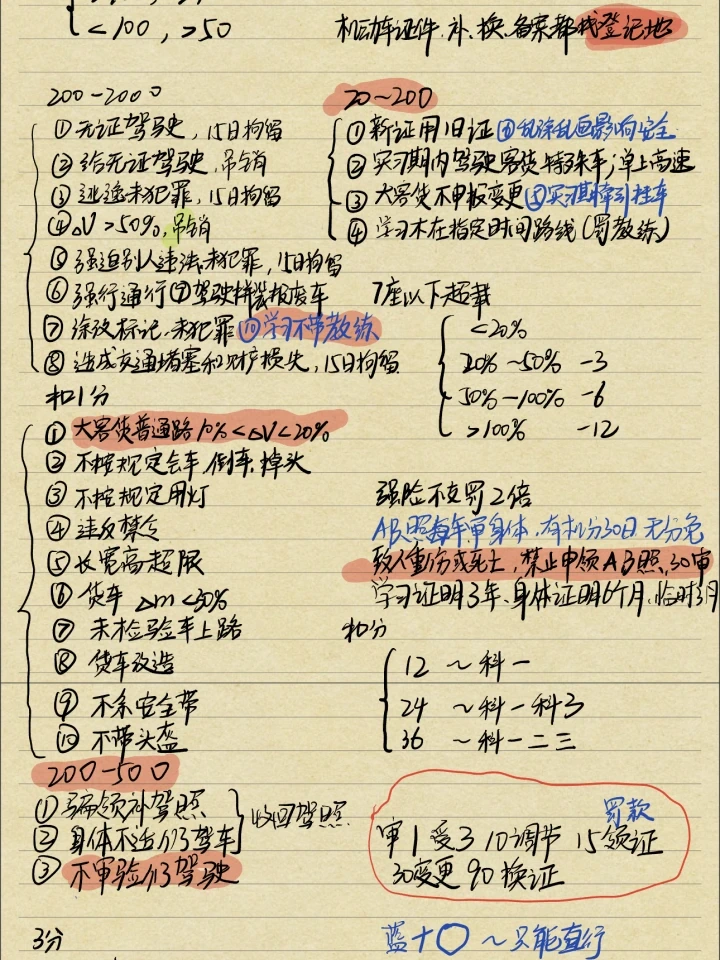 <100，>50
机动车证件.补、换、备案都找登记地
200-2000
①无证驾驶，15日拘留
②给无证驾驶，吊销
③逃逸未犯罪，15日拘留
④△V>50%，吊销
⑤强迫别人违法未犯罪，15日拘留
⑥强行通行⑨驾驶拼装报废车
⑦涂改标记.未犯罪⑩学习不带教练
⑧造成交通堵塞和财产损失，15日拘留
20~200
①新证用旧证④乱涂乱画影响安全
②实习期内驾驶客货特殊车；单上高速
③大客货不申报变更⑤实习期牵引挂车
④学习不在指定时间路线(罚教练)
7座以下超载
<20%
20%~50% -3
50%~100% -6
>100% -12
扣1分
①大客货普通路10%<△V<20%
②不按规定会车，倒车，掉头
③不按规定用灯
④违反禁令
⑤长宽高超限
⑥货车 △m<30%
⑦未检验车上路
⑧货车改造
⑨不系安全带
⑩不带头盔
强险不支罚2倍
AB照每年审身体，有扣分30日 无分免
致人重伤或死亡，禁止申领AB照.30审
学习证明3年、身体证明6个月，临时3月
扣分
12 ~科一
24 ~科一科3
36 ~科一二三
200-500
①骗领补驾照
②身体不适仍驾车
收回驾照
③不审验仍驾驶
罚款
审1受3 10调节 15领证
30变更 90换证
3分
蓝+○ ~只能直行